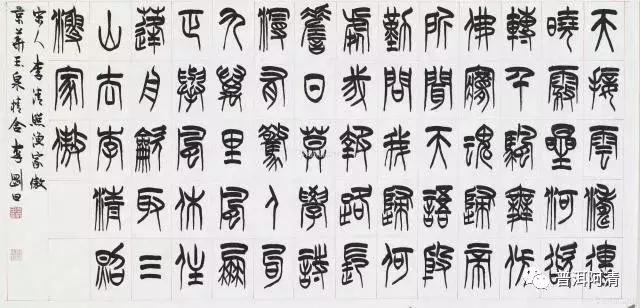 天接雲濤連
曉霧星河欲
轉千帆舞彷
佛夢魂歸帝
所聞天語殷
勤問我歸何
處我報路長
嗟日暮學詩
謾有驚人句
九萬里風鵬
正舉風休住
蓬舟吹取三
山去李清照
漁家傲
宋人李清照漁家傲
京華玉泉精舍書
普洱阿清